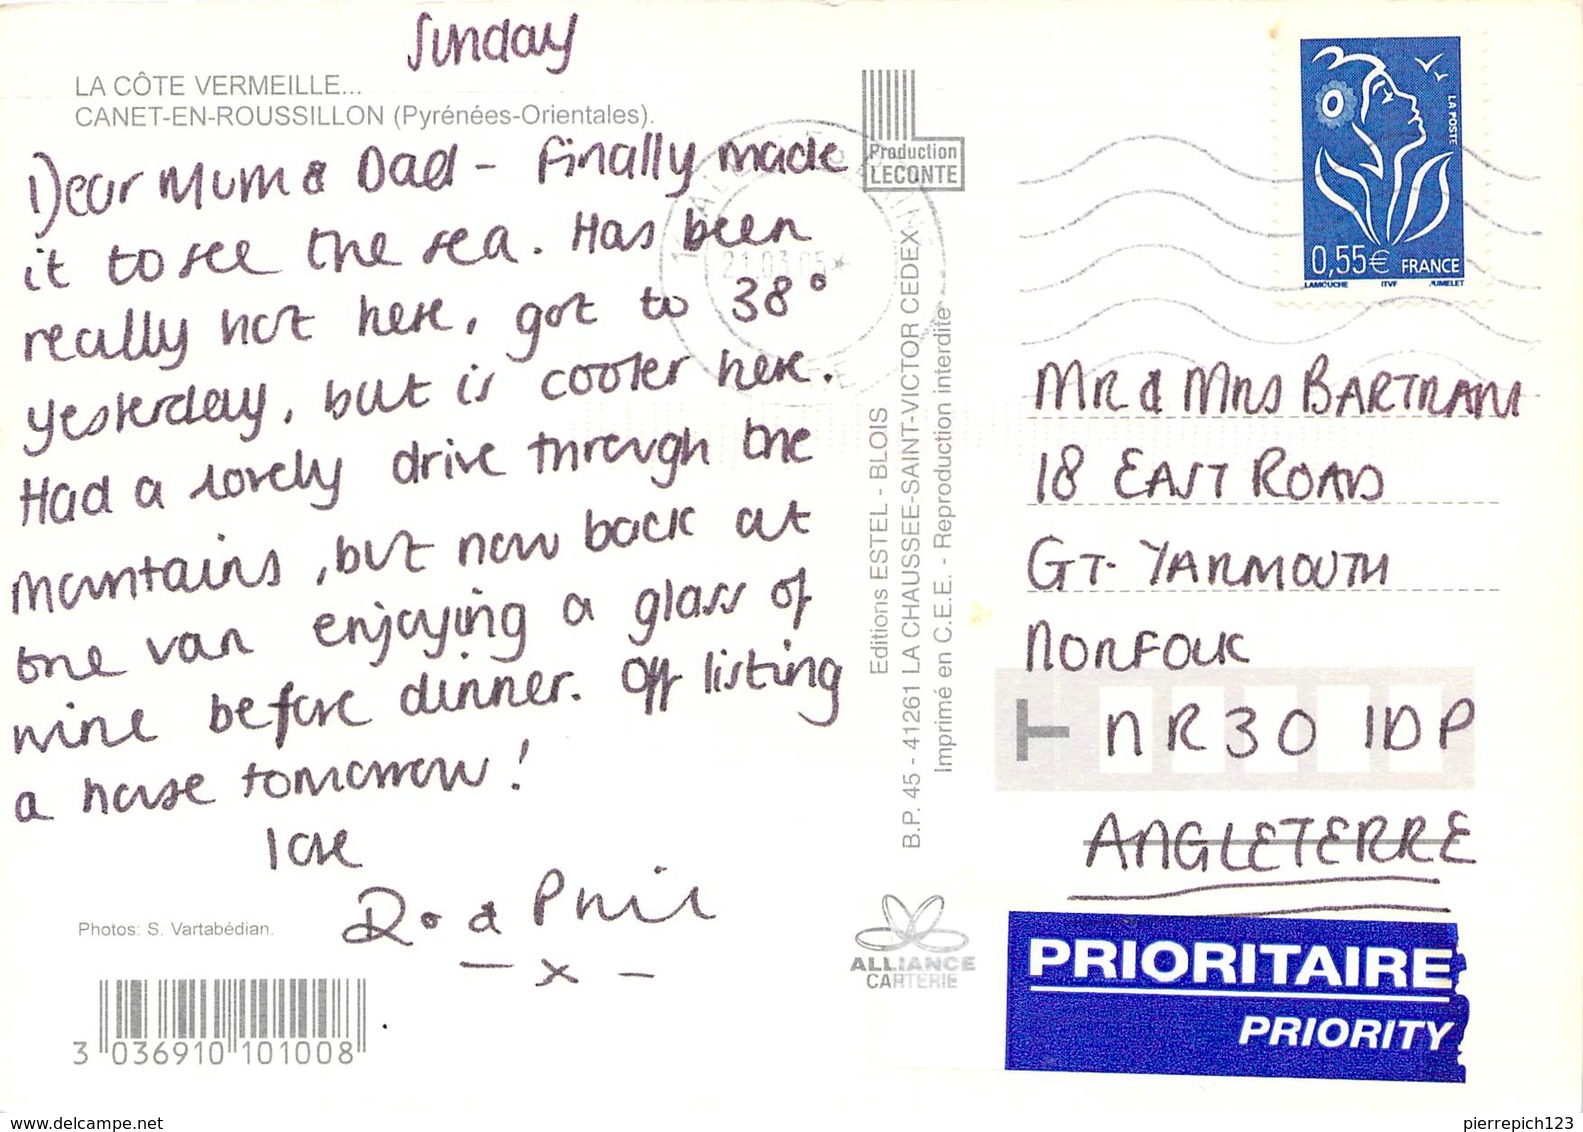 Sunday
LA CÔTE VERMEILLE...
CANET-EN-ROUSSILLON (Pyrénées-Orientales).
Dear Mum & Dad - finally made
it to see the sea. Has been
really hot here, got to 38°
yesterday, but is cooler here.
Had a lovely drive through the
mountains, but now back at
the van enjoying a glass of
wine before dinner. Off listing
a house tomorrow!
love
Ro & Phil
- x -
Photos: S. Vartabédian.
3 036910 101008
Production
LECONTE
21.03.05
Editions ESTEL - BLOIS
B.P. 45 - 41261 LA CHAUSSEE-SAINT-VICTOR CEDEX
Imprimé en C.E.E. - Reproduction interdite
ALLIANCE
CARTERIE
LA POSTE
0,55€ FRANCE
LAMOUCHE ITVF JUMELET
MR & MRS BARTRAM
18 EAST ROAD
GT. YARMOUTH
NORFOLK
NR30 1DP
ANGLETERRE
PRIORITAIRE
PRIORITY
www.delcampe.net
pierrepich123